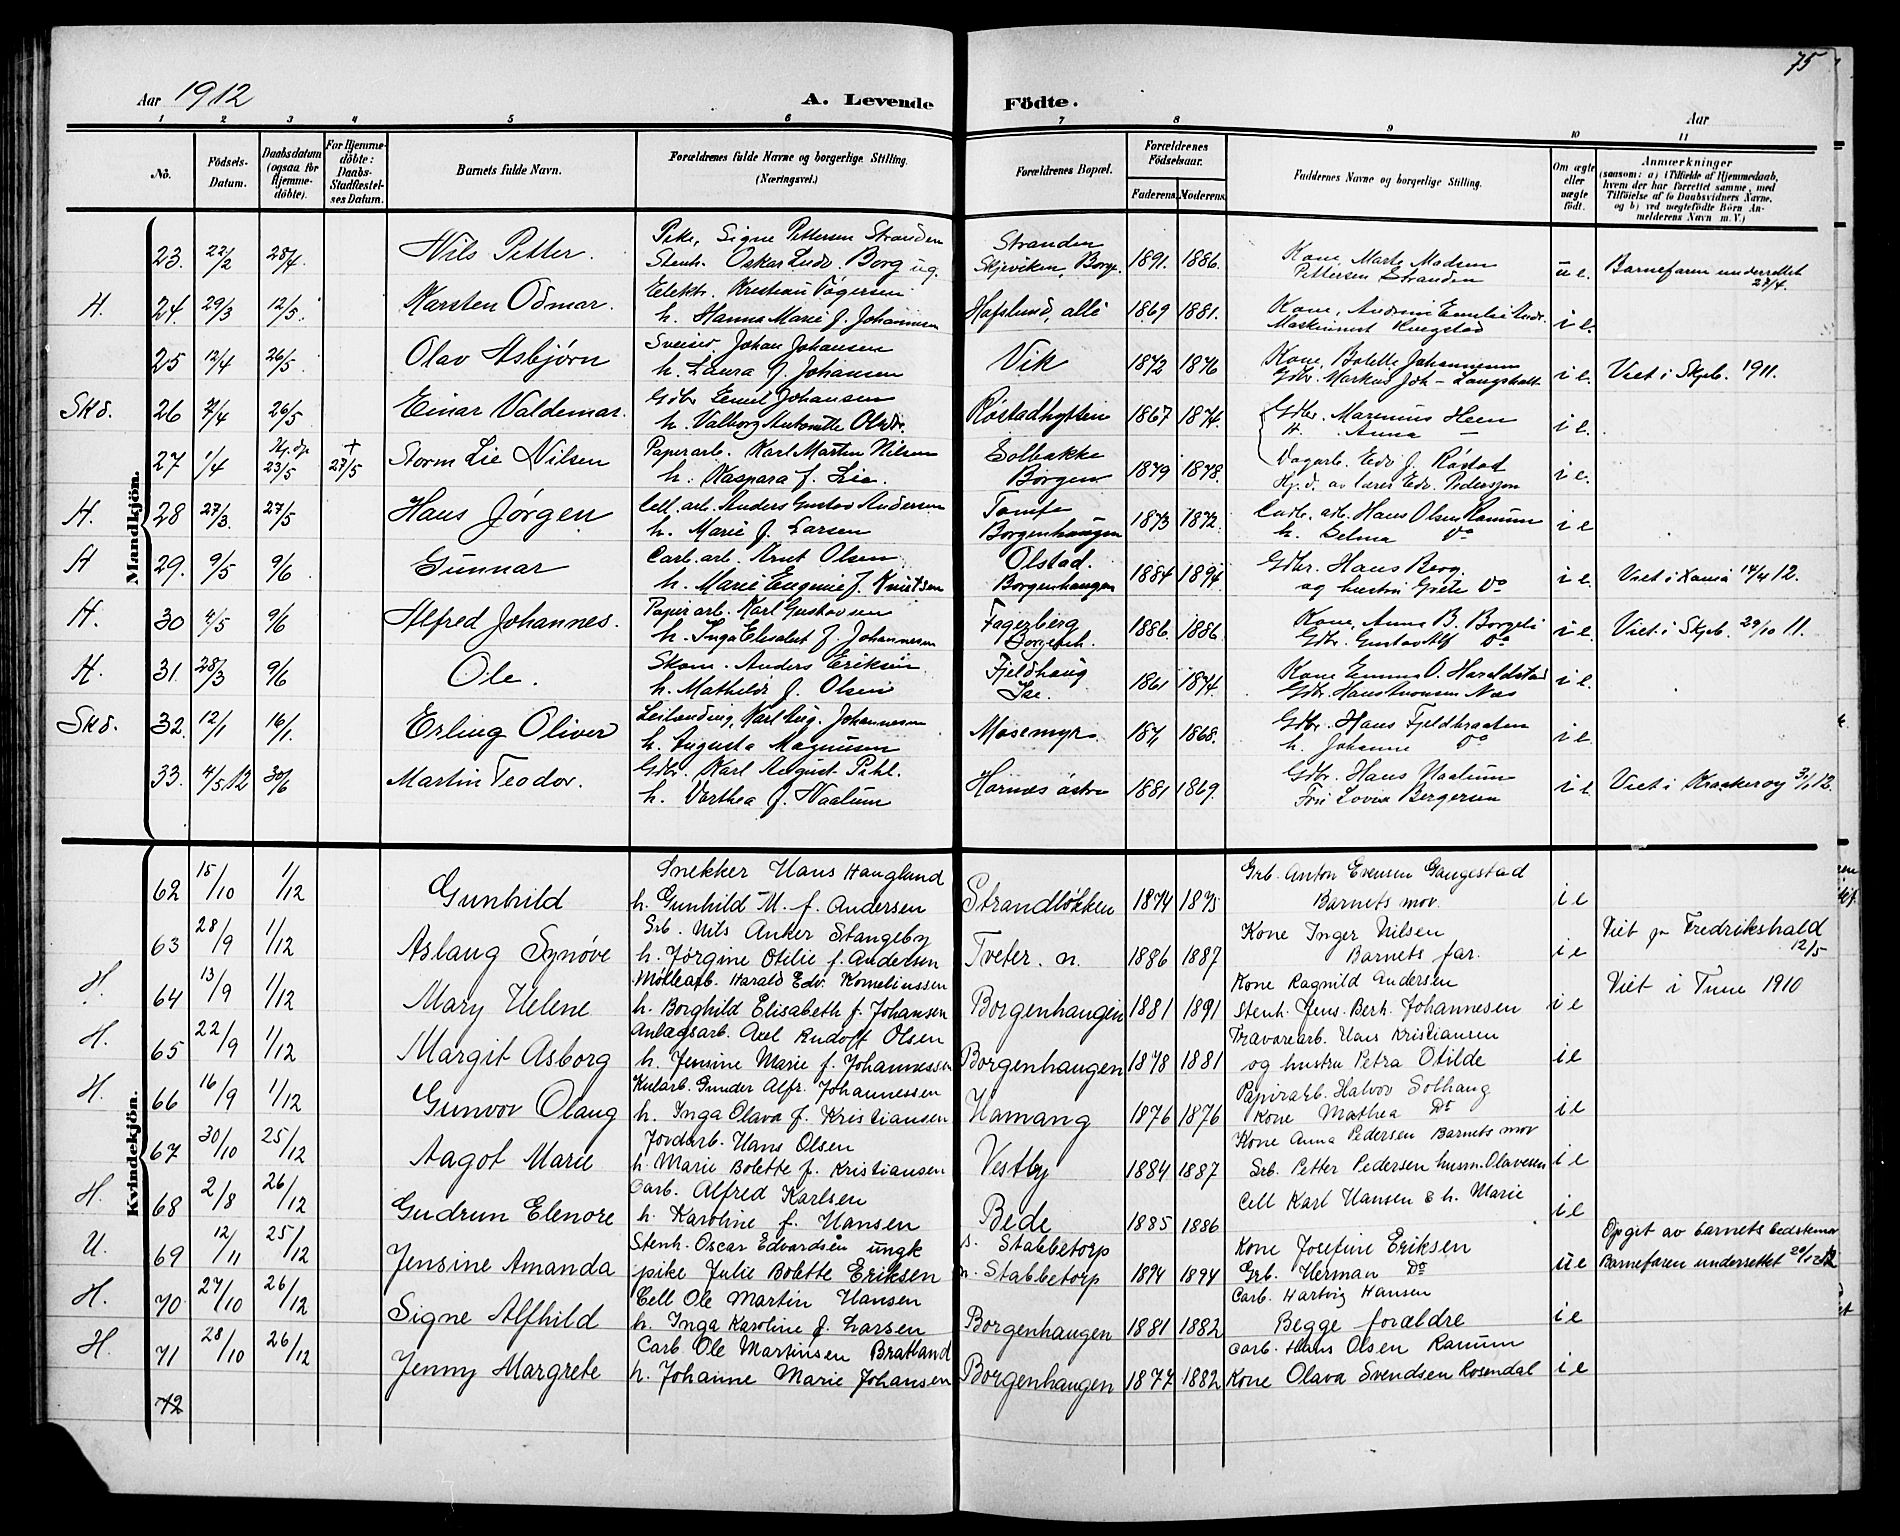 75
Aar 1912
A. Levende Födte.
Aar
1 2 3 4 5 6 7 8 9 10 11
No. Födsels-Datum. Daabsdatum (ogsaa for Hjemme-döbte). For Hjemme-döbte: Daabs-Stadfæstel-ses Datum. Barnets fulde Navn. Forældrenes fulde Navne og borgerlige Stilling. (Næringsvei.) Forældrenes Bopæl. Forældrenes Födselsaar. Faderens. Moderens. Faddernes Navne og borgerlige Stilling. Om ægte eller uægte födt. Anmærkninger (saasom: a) i Tilfælde af Hjemmedaab, hvem der har forrettet samme, med Tilföielse af to Daabsvidners Navne. og b) ved uægtefödte Börn An-melderens Navn m. V.)
Mandkjön.
Pike, Signe Pettersen Stranden Stranden Kone Marte Madsen
23. 22/2 28/4 Nils Petter. Stenh. Oskar Ludv. Borg ug. Skjeviken, Borge. 1891. 1886. Pettersen Stranden u e. Barnefaren underrettet 27/4.
Elektr. Kristian Tögersen Kone, Andrine Emilie
H. 24. 29/3 12/5. Karsten Odmar. h. Hanna Marie f. Johannesen Hafslund, allé 1869 1881. Maskinmest Ringstad i e.
Sveiser Johan Johansen Kone, Bolette Johannesen
25 12/4 26/5. Olav Asbjørn h. Laura f. Johansen Vik 1872 1876 Gdbr. Markus Joh - Langsholt i e. Viet i Skjeb. 1911.
Gdbr Emil Johansen Gdbr. Marenius Heen
Skd. 26 7/4 26/5 Einar Valdemar. h. Valborg Antonette Olsdr. Röstadhytten 1867 1874. H. Anna — i e.
Hj.dp + Paperarb. Karl Marten Nilsen Solbakke Dagarb. Edv J. Röstad
27 1/4 23/5 27/5 Storm Lie Nilsen h. Kaspara f. Lie. Borgen 1879 1878. Hj.d. av lærer Edv. Pedersen i e.
Cell. arb. Anders Gustav Andersen Tomte Carb. arb. Hans Olsen Ranum
H. 28 27/3. 27/5 Hans Jörgen h. Marie f. Larsen Borgenhaugen 1873 1872. h. Selma Do i e
Carb. arb. Arnt Olsen Olstad. Gdbr. Hans Berg.
H 29. 9/5 9/6 Gunnar h. Marie Eugenie f. Knutsen Borgenhaugen 1884 1894. og hustru Grete Do i e. Viet i Rania 14/4 12.
Paperarb. Karl Gustavsen Fagerberg Kone, Anna B. Borgeli
H. 30 4/5 9/6 Alfred Johannes. h. Inga Elisabet f. Johannesen Borgenh. 1886. 1886. Gdbr. Gustav Alf Do i e. Viet i Skjeb. 29/10 11.
Skom. Anders Eriksen Fjeldhaug Kone Emma O. Haraldstad
H. 31. 28/3 9/6 Ole. h. Mathilde f. Olsen Ise. 1861 1874. Gdbr. Hans Næs i e.
Leilænding, Karl Aug. Johannesen Gdbr. Hans Fjeldbraaten
Skd. 32. 12/1 16/1. Erling Oliver h. Augusta Magnusen Mosemyr. 1871 1868. h. Johanne Do i e.
Gdbr. Karl August Pehl. Gdbr. Hans Naalum
33. 4/5.12 30/6 Martin Teodor. h. Dorthea f. Naalum Hornes östre 1881 1869. Frk Lovise Bergersen i e. Viet i Kraakeröy 3/1 12.
Kvindekjön.
Snekker Hans Haugland Grb. Anton Evensen Gangestad
62 15/10 1/12 Gunhild h. Gunhild M. f. Andersen Strandløkken 1874 1875 Barnets mor. i e
Grb. Nils Anker Stangeby Kone Inger Nilsen Viet pr Fredrikshald
63 28/9 1/12 Aslaug Synøve h. Jørgine Otilie f. Andersen Tveter. n. 1886 1887 Barnets far. i e 12/5
Mølleatb. Harald Edv. Korneliussen Kone Ragnild Andersen Viet i Tune 1910
H. 64 13/9 1/12 Mary Helene h. Borghild Elisabeth f. Johansen Borgenhaugen 1881 1891 Stenh. Jens. Bert. Johannesen i e
Anlagsarb. Axel Rudolf Olsen Travarearb. Hans Kristiansen
H. 65 22/9 1/12 Margit Asborg h. Jensine Marie f. Johannessen Borgenhaugen 1878 1881 og hustru Petra Otilde i e
Kularb. Gunder Alfr. Johannessen Papirarb. Halvor Solhaug
H. 66 16/9 1/12 Gunvor Olaug h. Inga Olava f. Kristiansen Hamang 1876 1876 Kone Mathea Do i e
Jordarb. Hans Olsen Kone Anna Pedersen Barnets mor
67 30/10 25/12 Aagot Marie h. Marie Bolette f. Kristiansen Vestby 1884 1887 Srb. Petter Pedersen husm. Olavesen i e
Carb. Alfred Karlsen Cell Karl Hansen & h. Marie
H. 68 2/8 26/12 Gudrun Elenore h. Karoline f. Hansen Bede 1885 1886 i e
Stenh. Oscar Edvardsen ungk s. Stabbetorp Kone Josefine Eriksen Opgit av barnets bedstemor
U. 69 12/11 25/12 Jensine Amanda pike Julie Bolette Eriksen n. Stabbetorp 1894 1894 Grb. Herman Do u e Barnefaren underrettet 20/12 12
Cell Ole Martin Hansen Carb. Hartvig Hansen
H. 70 27/10 26/12 Signe Alfhild h. Inga Karoline f. Larsen Borgenhaugen 1881 1882 Begge forældre i e
Carb Ole Martinsen Bratland Carb. Hans Olsen Ranum
H. 71 28/10 26/12 Jenny Margrete h. Johanne Marie Johansen Borgenhaugen 1877 1882 Kone Olava Svendsen Rosendal i e
72